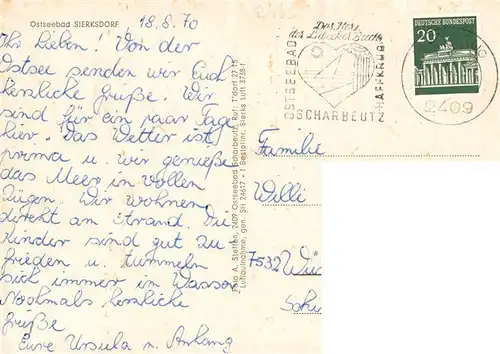 Ostseebad SIERKSDORF
18.8.70
Ihr Lieben! Von der
Ostsee senden wir Euch
herzliche Grüße. Wir
sind für ein paar Tage
hier. Das Wetter ist
prima u. wir genieße
das Meer in vollen
Zügen. Wir wohnen
direkt am Strand. Die
Kinder sind gut zu-
frieden u. tummeln
sich immer im Wasser
Nochmals herzliche
Grüße
Eure Ursula u. Anhang
Foto A. Steffen, 2409 Ostseebad Scharbeutz, Ruf: T'dorf 27 15
Luftaufnahme, gen. SH 24617 - 1 Bestellnr. Sierks Luft 3738-1
Das Herz
der Lübecker Bucht
OSTSEEBAD
SCHARBEUTZ
HAFFKRUG
DEUTSCHE BUNDESPOST
20
2409
Familie
Willi
7532